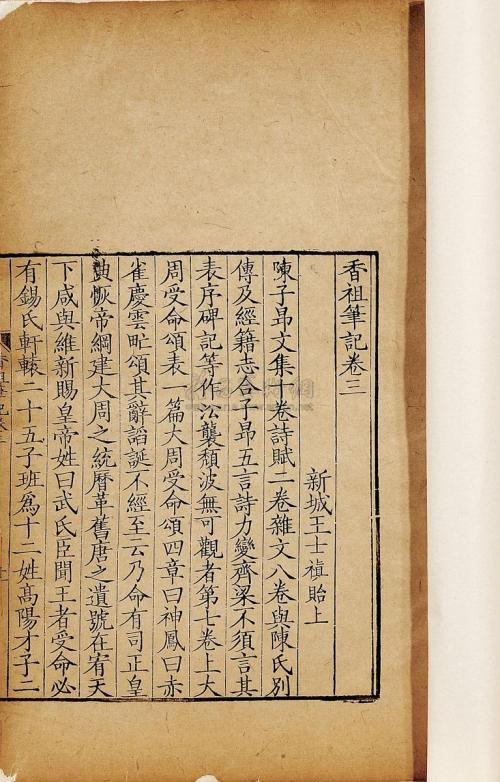 香祖筆記卷三
新城王士禛貽上
陳子昻文集十卷詩賦二卷雜文八卷與陳氏別
傳及經籍志合子昻五言詩力變齊梁不須言其
表序碑記等作沿襲頽波無可觀者第七卷上大
周受命頌表一篇大周受命頌四章曰神鳳曰赤
雀慶雲甿頌其辭謟誕不經至云乃命有司正皇
典恢帝綱建大周之統曆革舊唐之遺號在宥天
下咸與維新賜皇帝姓曰武氏臣聞王者受命必
有錫氏軒轅二十五子班爲十二姓高陽才子二